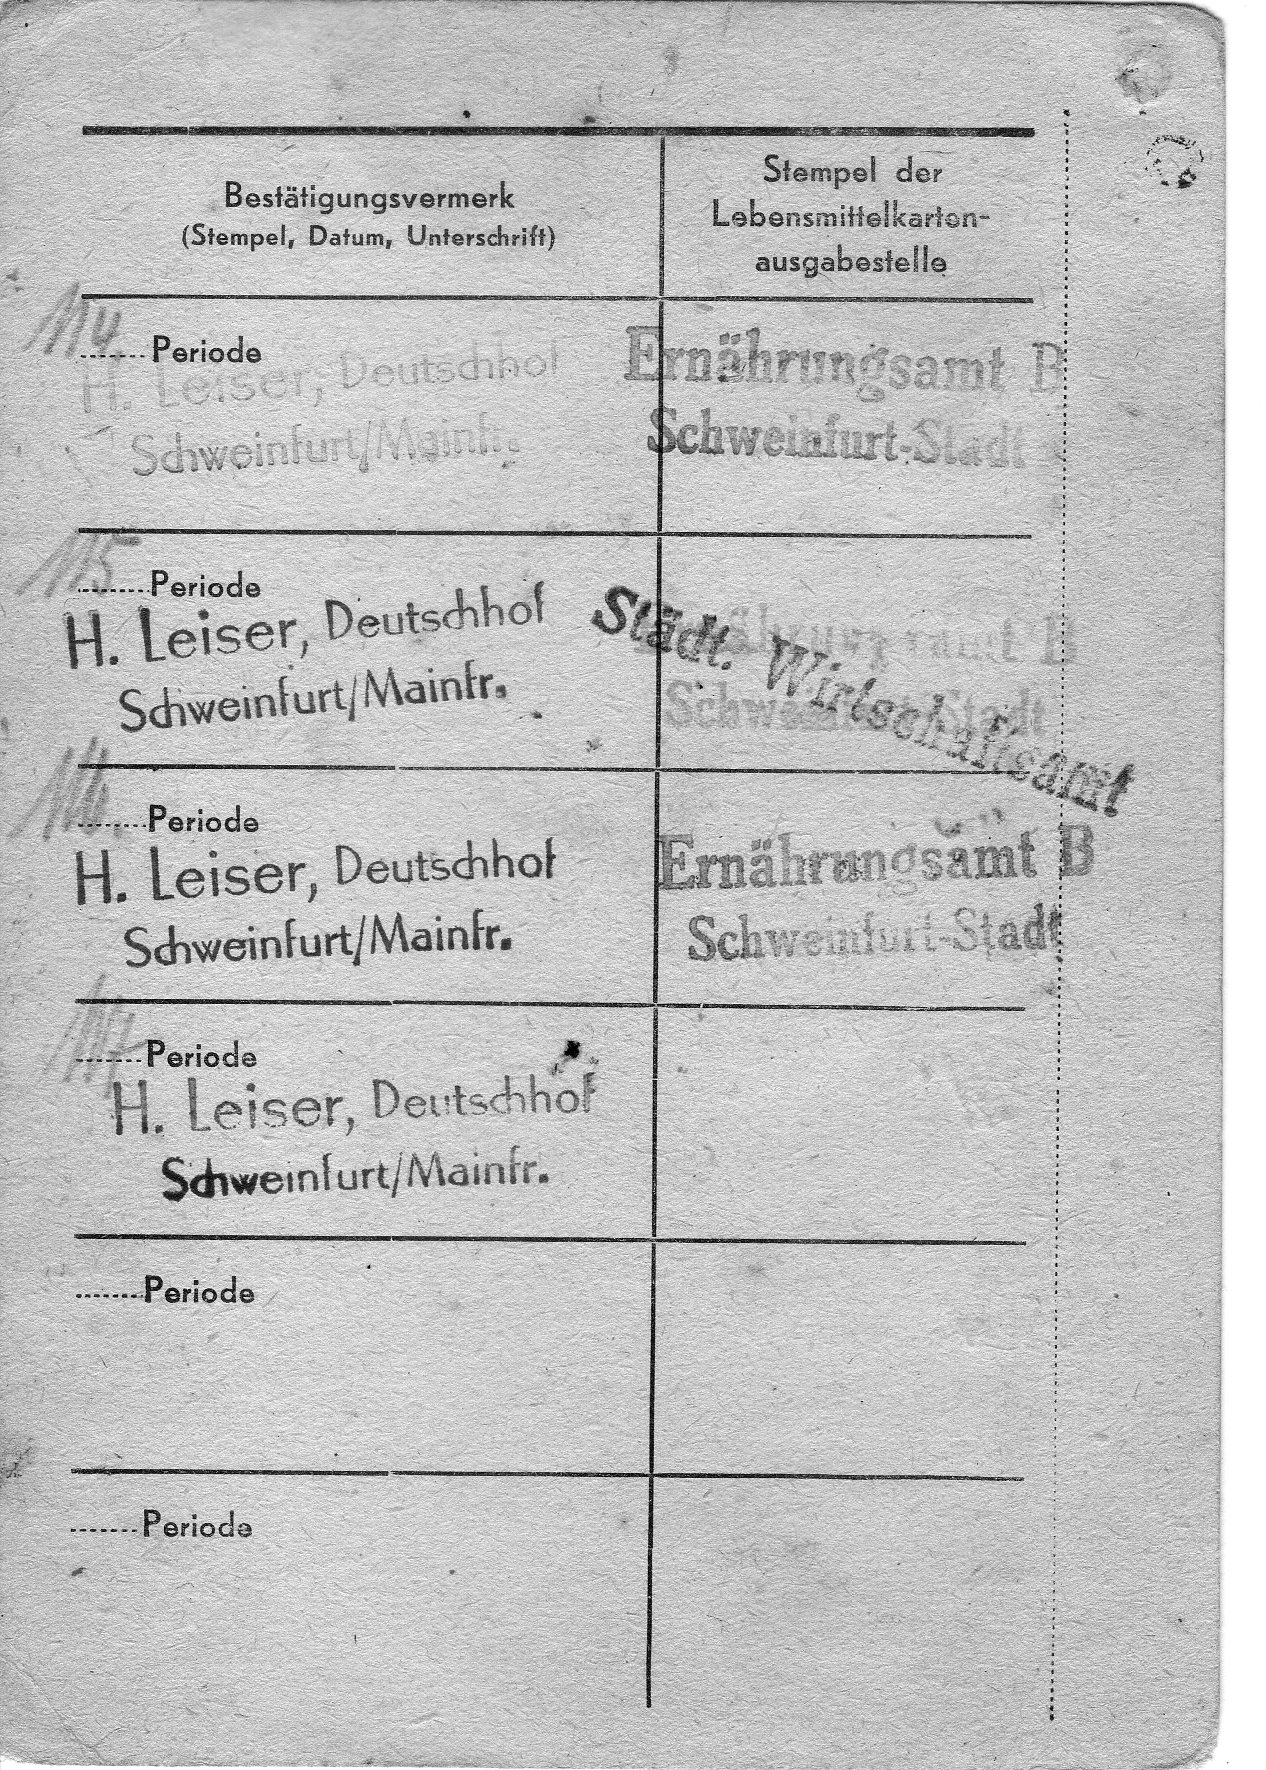 Bestätigungsvermerk
(Stempel, Datum, Unterschrift)
Stempel der
Lebensmittelkarten-
ausgabestelle
114 Periode
H. Leiser, Deutschhof
Schweinfurt/Mainfr.
Ernährungsamt B
Schweinfurt-Stadt
115 Periode
H. Leiser, Deutschhof
Schweinfurt/Mainfr.
Ernährungsamt B
Schweinfurt-Stadt
Städt. Wirtschaftsamt
116. Periode
H. Leiser, Deutschhof
Schweinfurt/Mainfr.
Ernährungsamt B
Schweinfurt-Stadt
117 Periode
H. Leiser, Deutschhof
Schweinfurt/Mainfr.
.......Periode
.......Periode